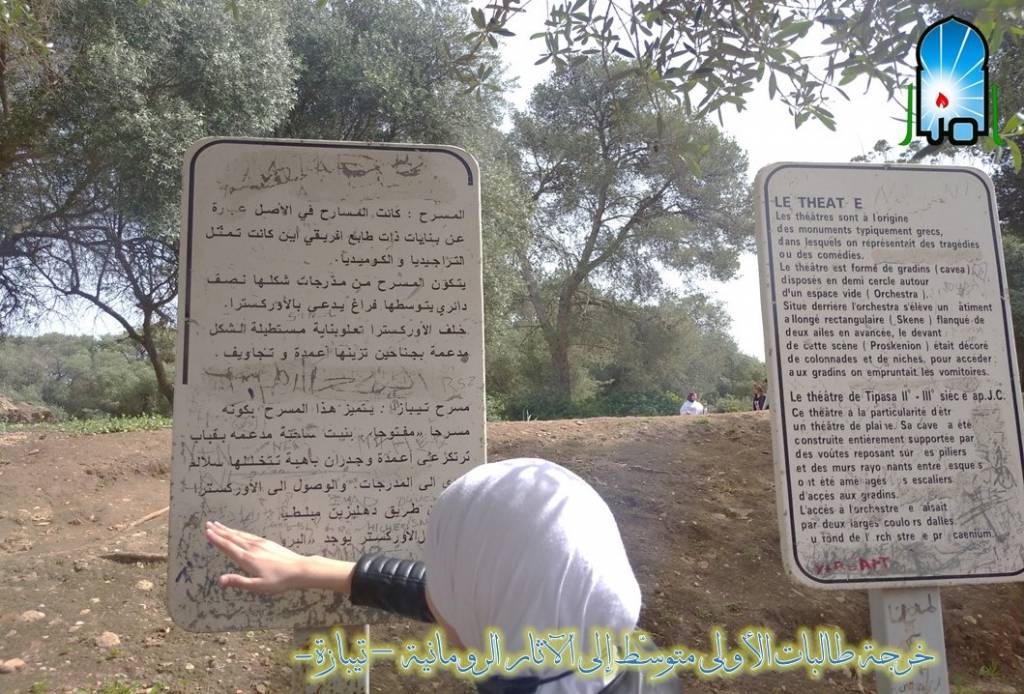 المسرح : كانت المسارح في الأصل عبارة
عن بنايات ذات طابع إفريقي أين كانت تمثّل
التراجيديا والكوميديا.
يتكون المسرح من مدرجات شكلها نصف
دائري يتوسطها فراغ يدعى بالأوركسترا.
خلف الأوركسترا تعلوبناية مستطيلة الشكل
مدعمة بجناحين تزينها أعمدة و تجاويف.
مسرح تيبازة : يتميز هذا المسرح بكونه
مسرحا «مفتوحا» بنيت ساحته مدعمه بقباب
ترتكز على أعمدة وجدران باهية تتخللها سلالم
الى المدرجات والوصول الى الأوركسترا
طريق دهليزين مبلطي
الأوركستر يوجد
LE THEAT E
Les théâtres sont à lorigine
des monuments typiquement grecs,
dans lesquels on représentait des tragédies
ou des comédies.
Le théâtre est formé de gradins (cavea)
disposés en demi cercle autour
d'un espace vide ( Orchestra ).
Situe derrière l'orchestra s'élève un âtiment
allongé rectangulaire ( Skene ) flanqué de
deux ailes en avancée, le devant
de cette scène ( Proskenion ) était décoré
de colonnades et de niches, pour acceder
aux gradins on empruntait les vomitoires.
Le théâtre de Tipasa II° - III° sièc e ap.J.C.
Ce théâtre a la particularité d'êtr
un théâtre de plaine. Sa cave a été
construite entièrement supportée par
des voûtes reposant sur es piliers
et des murs rayo nants entre esque s
o t été aménagés s escaliers
d'accès aux gradins.
L'accès à l'orchestre e aisait
par deux larges couloirs dallés
u fond de l' rch stre e pr caenium.
خرجة طالبات الأولى متوسّط إلى الآثار الرومانية - تيبازة-